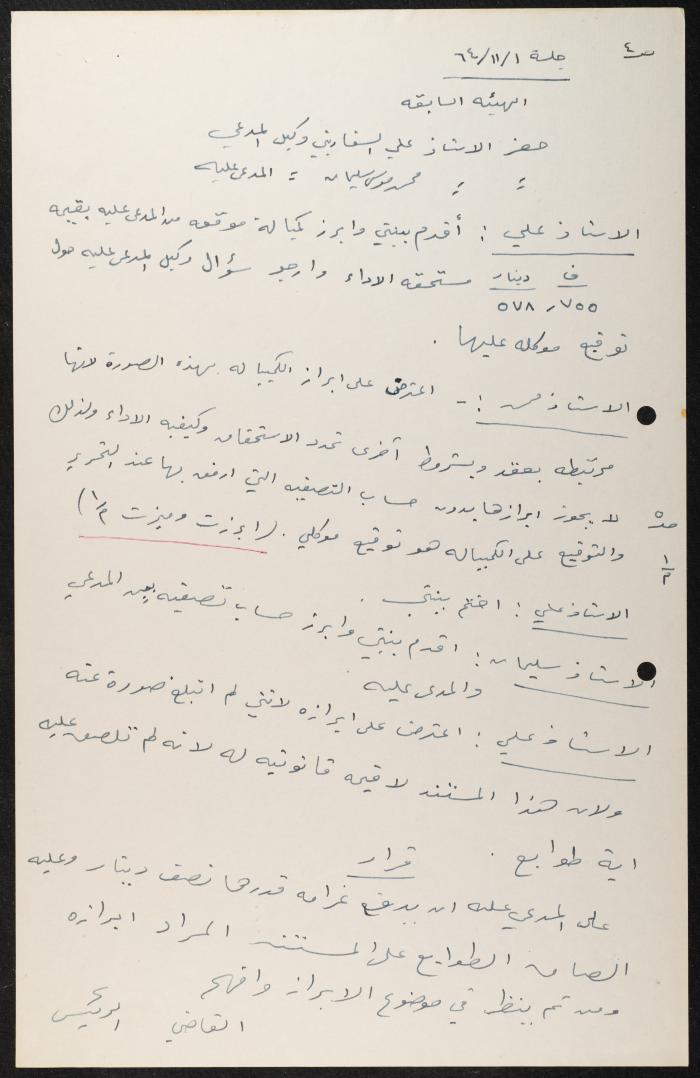 ص٤
جلسة ١/١١/٦٤
الهيئه السابقه
حضر الاستاذ علي السفاريني وكيل المدعي
〃 〃 محمد موسى سليمان 〃 المدعى عليه
الاستاذ علي : أقدم بينتي وابرز كمبيالة موقعه من المدعى عليه بقيمه
ف دينار مستحقه الاداء وارجو سؤال وكيل المدعى عليه حول
٧٥٥ر٥٧٨
توقيع موكله عليها .
الاستاذ :ـ اعترض على ابراز الكمبياله بهذه الصورة لانها
مرتبطه بعقد وبشروط أخرى تحدد الاستحقاق وكيفيه الاداء ولذلك
ص٥ لا يجوز ابرازها بدون حساب التصفيه التي ارفق بها عند التحرير
والتوقيع على الكمبياله هو توقيع موكلي . (ابرزت وميزت م/١)
١/م
الاستاذ علي : اختم بينتي .
الاستاذ سليمان : اقدم بينتي وابرز حساب تصفيه بين المدعي
والمدعى عليه
الاستاذ علي : اعترض على ابرازه لانني لم اتبلغ صورة عنه
ولان هذا المستند لا قيمه قانونيه له لانه لم تلصق عليه
اية طوابع .
قرار
على المدعي عليه ان يدفع غرامه قدرها نصف دينار وعليه
الصاق الطوابع على المستند المراد ابرازه
ومن ثم ينظر في موضوع الابراز وافهم
القاضي الرئيس